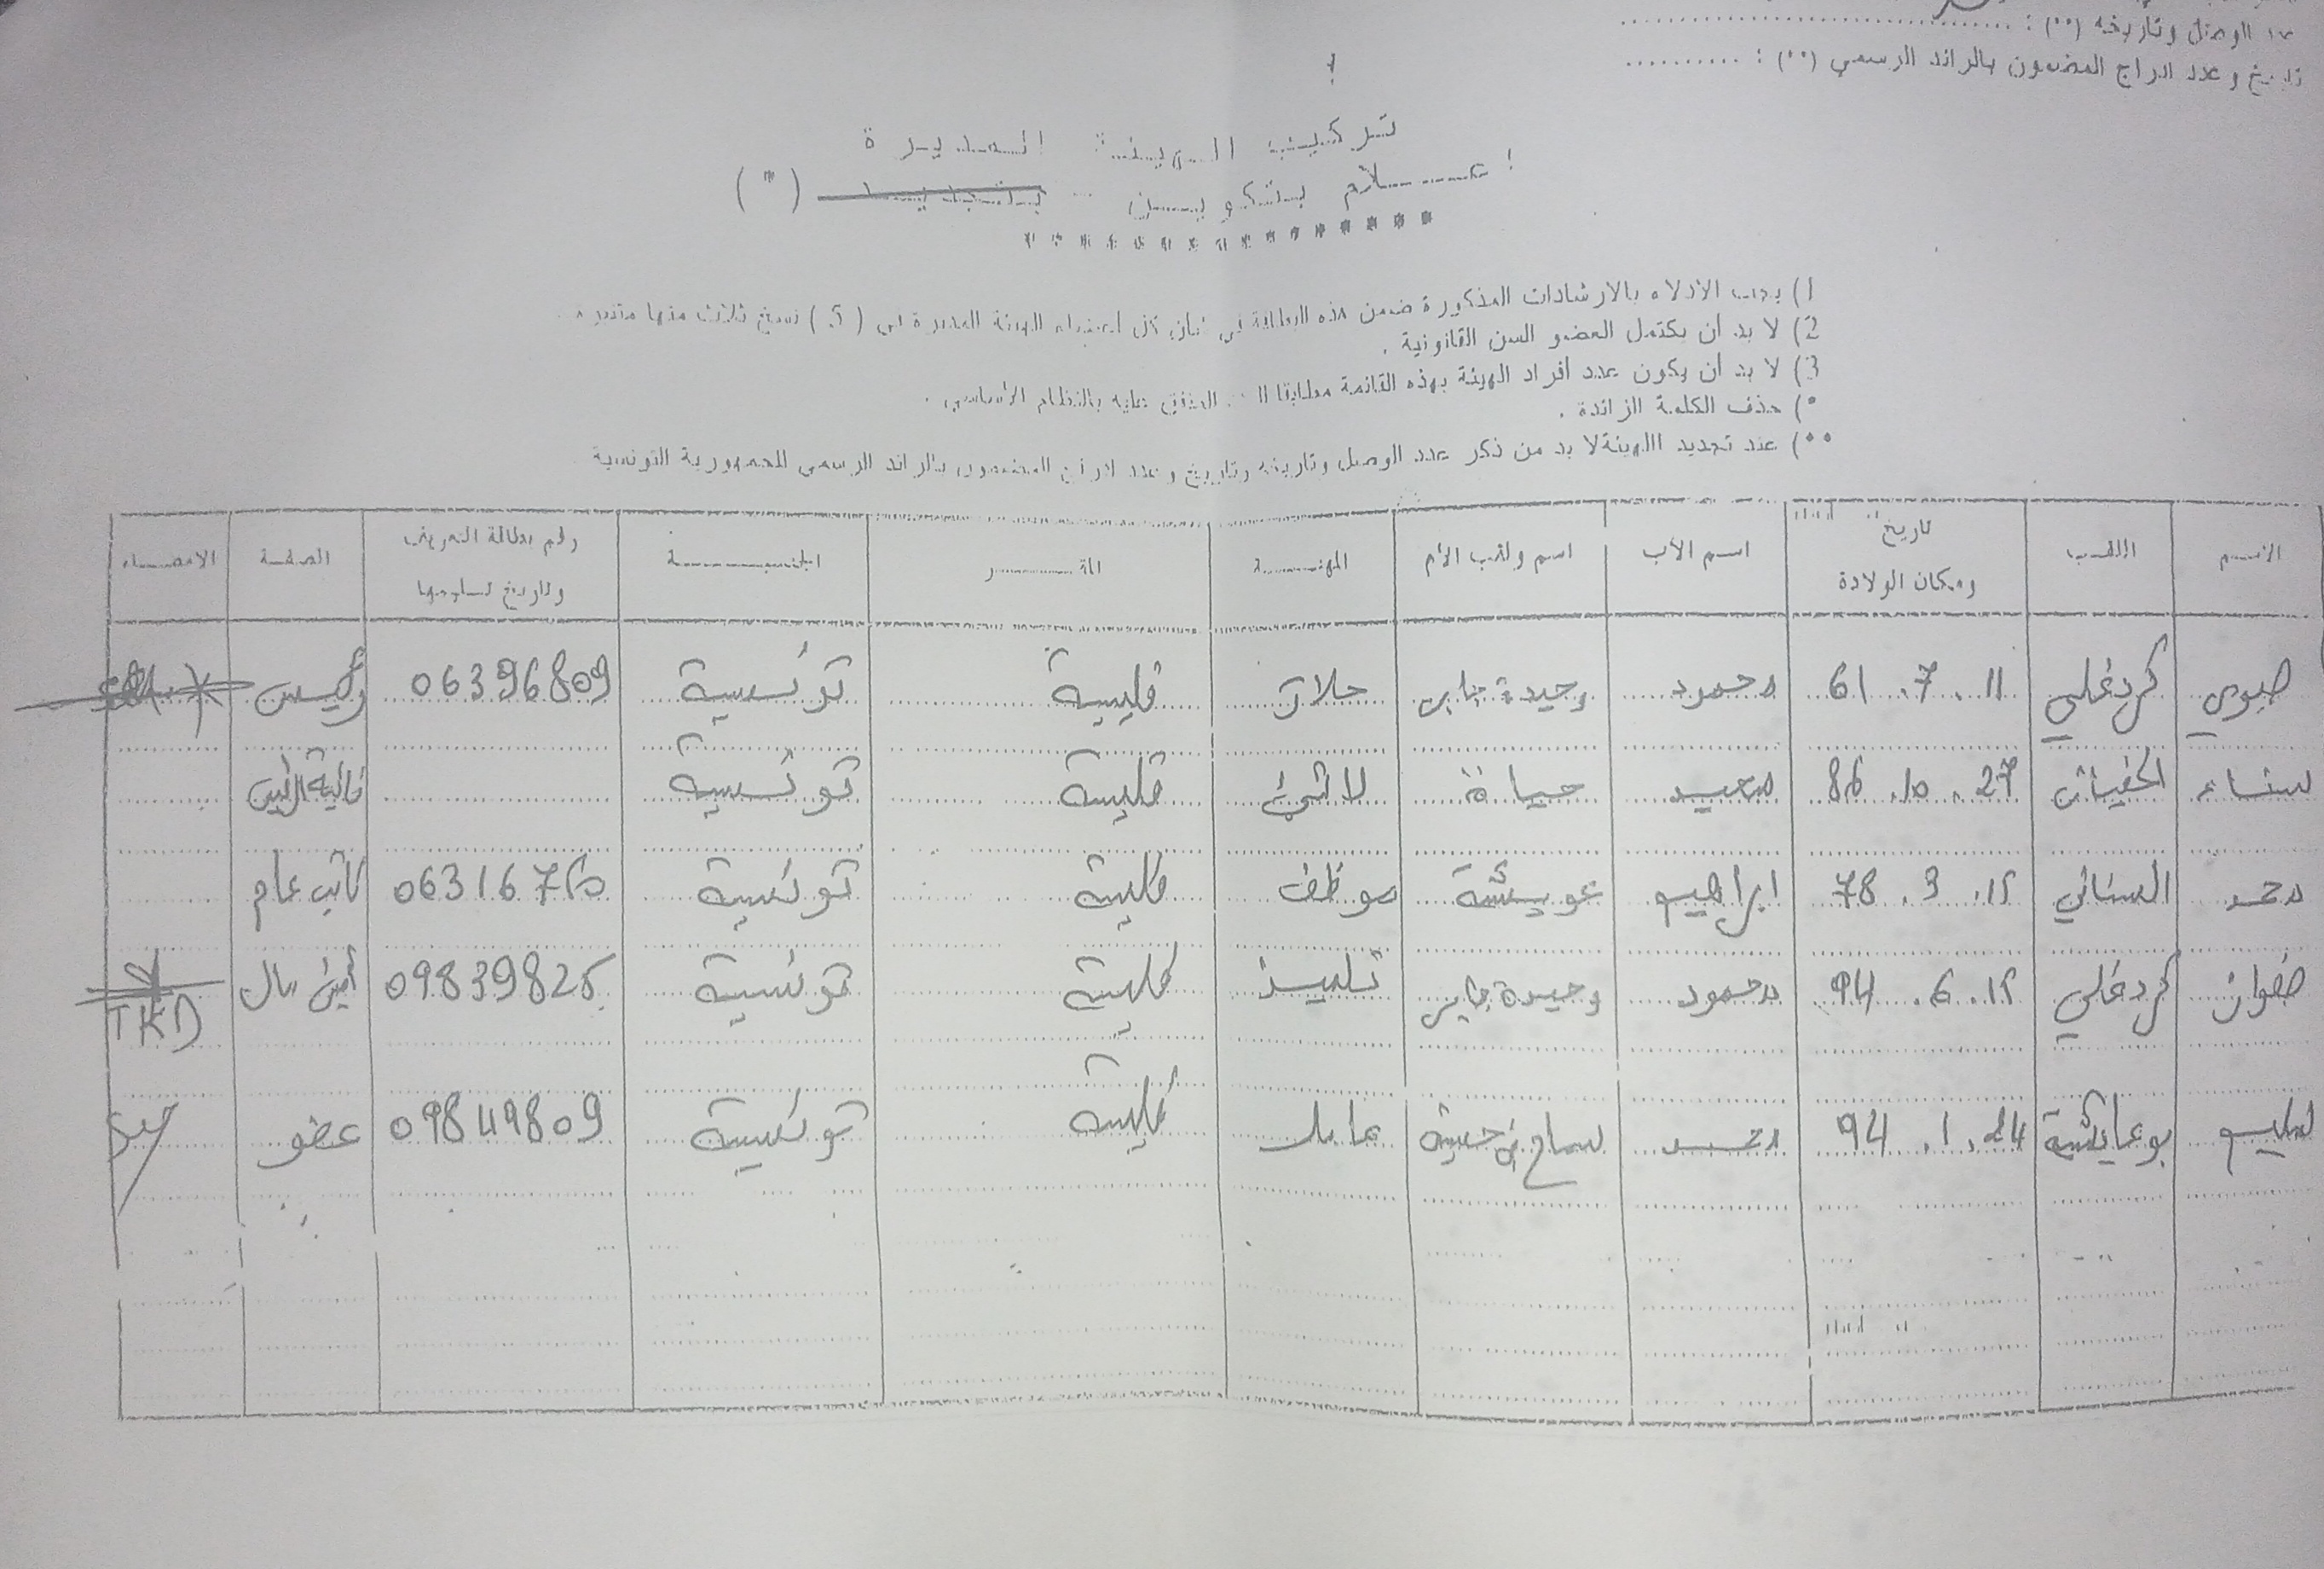 عدد الوصل وتاريخه (••) : ....................
تاريخ وعدد ادراج المضمون بالرائد الرسمي (••) : ..........
تركيب الهيئة المديرة
اعلام بتكوين - بتجديد (*)
* * * * * * * * * * * * * * * *
1) يجب الادلاء بالارشادات المذكورة ضمن هذه البطاقة في شأن كل اعضاء الهيئة المديرة في ( 5 ) نسخ ثلاث منها متنبرة .
2) لا بد أن يكتمل العضو السن القانونية .
3) لا بد أن يكون عدد أفراد الهيئة بهذه القائمة مطابقا المتفق عليه بالنظام الأساسي .
•) حذف الكلمة الزائدة .
••) عند تجديد الهيئة لا بد من ذكر عدد الوصل وتاريخه وتاريخ وعدد ادراج المضمون بالرائد الرسمي للجمهورية التونسية
الاسم اللقب تاريخ ومكان الولادة اسم الأب اسم ولقب الأم المهنة المقر الجنسية رقم بطاقة التعريف وتاريخ تسليمها الصفة الامضاء
كردغلي 11 . 7 . 61 محمود وحيدة جابر حلاق قليبية تونسية 06396809 رئيس
سناء 27 . 10 . 86 حياة لا شيء قليبية تونسية نائبة الرئيس
محمد السناني 15 . 3 . 78 ابراهيم عويشة موظف قليبية تونسية كاتب عام
صفوان كردغلي 15 . 6 . 94 محمود وحيدة جابر تلميذ قليبية تونسية 09839825 أمين مال TKD
سليم بوعايشة 24 . 1 . 94 محمد سماح عامل قليبية تونسية عضو